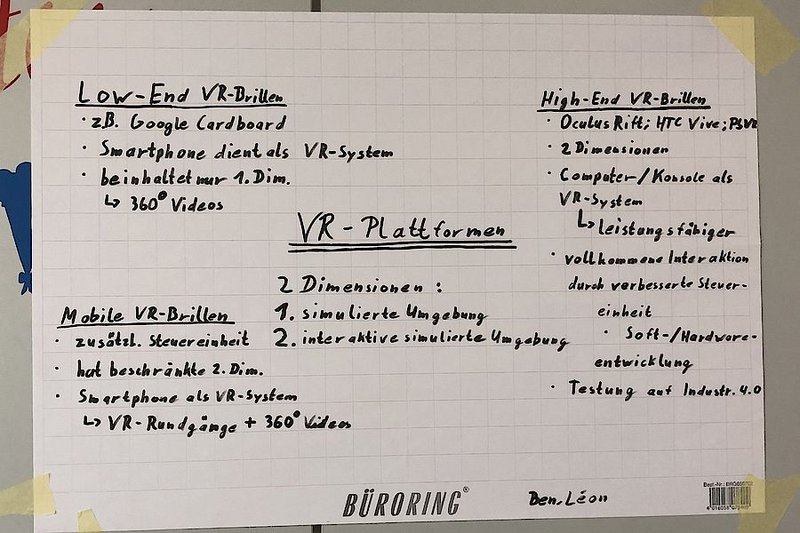 Low-End VR-Brillen
· zB. Google Cardboard
· Smartphone dient als VR-System
· beinhaltet nur 1. Dim.
↳ 360° Videos
High-End VR-Brillen
· Oculus Rift; HTC Vive; PSVR
· 2 Dimensionen
· Computer/Konsole als
VR-System
↳ leistungsfähiger
· vollkommene Interaktion
durch verbesserte Steuer-
einheit
· Soft-/Hardware-
entwicklung
· Testung auf Industr. 4.0
VR-Plattformen
2 Dimensionen:
1. simulierte Umgebung
2. interaktive simulierte Umgebung
Mobile VR-Brillen
· zusätzl. Steuereinheit
· hat beschränkte 2. Dim.
· Smartphone als VR-System
↳ VR-Rundgänge + 360° Videos
BÜRORING®
Ben, Léon